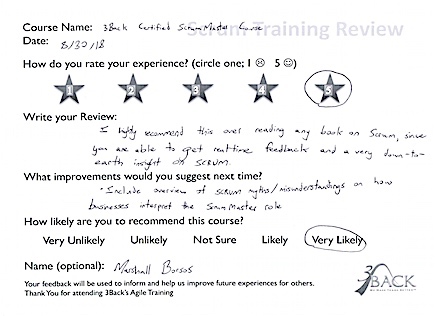 Scrum Training Review
Course Name: 3Back Certified Scrum Master Course
Date: 8/30/18
How do you rate your experience? (circle one; 1 ☹ 5 ☺)
1 2 3 4 5
Write your Review:
I highly recommend this over reading any book on Scrum, since
you are able to get real-time feedback and a very down-to-
earth insight on SCRUM.
What improvements would you suggest next time?
• Include overview of SCRUM myths/misunderstandings on how
businesses interpret the Scrum Master role
How likely are you to recommend this course?
Very Unlikely Unlikely Not Sure Likely Very Likely
Name (optional): Marshall Borsos
Your feedback will be used to inform and help us improve future experiences for others.
Thank You for attending 3Back's Agile Training
3BACK